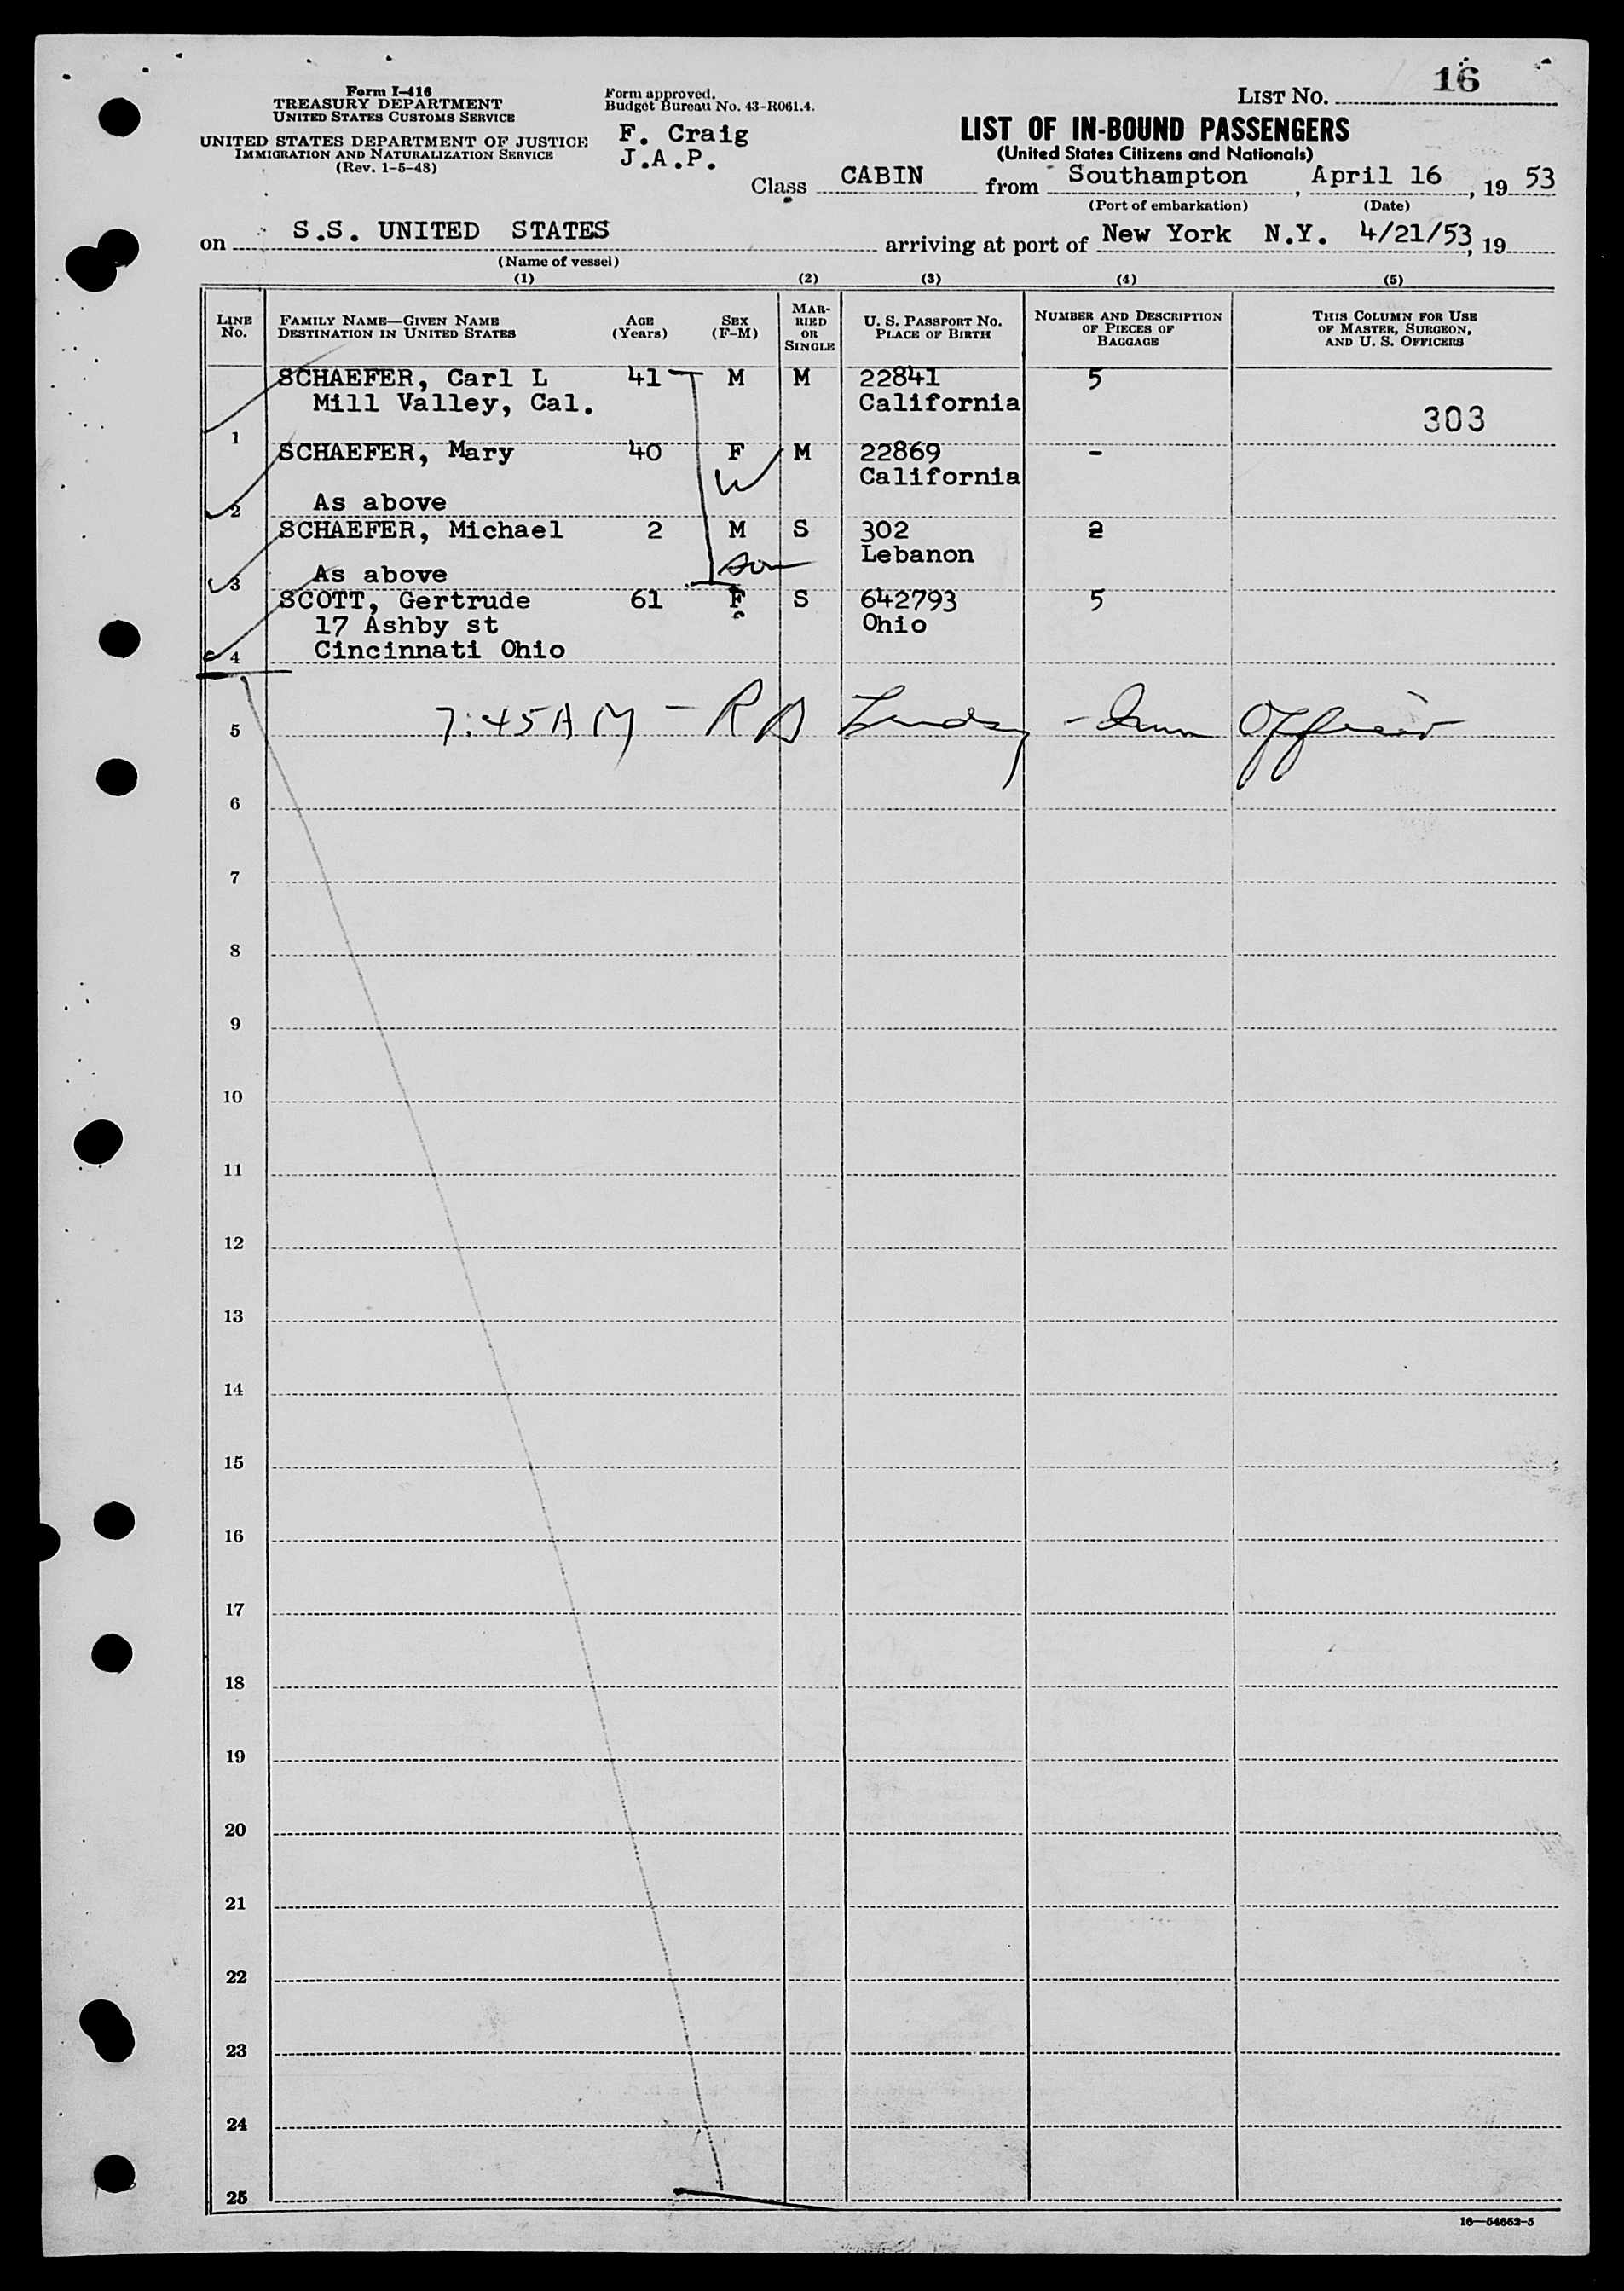 Form I-416
TREASURY DEPARTMENT
UNITED STATES CUSTOMS SERVICE
UNITED STATES DEPARTMENT OF JUSTICE
IMMIGRATION AND NATURALIZATION SERVICE
(Rev. 1-5-48)
Form approved.
Budget Bureau No. 43-R061.4.
F. Craig
J.A.P.
LIST NO. 16
LIST OF IN-BOUND PASSENGERS
(United States Citizens and Nationals)
Class CABIN from Southampton, April 16, 19 53
(Port of embarkation) (Date)
on S.S. UNITED STATES arriving at port of New York N.Y. 4/21/53, 19
(Name of vessel)
(1) (2) (3) (4) (5)
LINE No. FAMILY NAME—GIVEN NAME DESTINATION IN UNITED STATES AGE (Years) SEX (F-M) MARRIED OR SINGLE U. S. PASSPORT NO. PLACE OF BIRTH NUMBER AND DESCRIPTION OF PIECES OF BAGGAGE THIS COLUMN FOR USE OF MASTER, SURGEON, AND U. S. OFFICERS
SCHAEFER, Carl L 41 M M 22841 5
Mill Valley, Cal. California
303
1
SCHAEFER, Mary 40 F M 22869 -
W California
2 As above
SCHAEFER, Michael 2 M S 302 2
son Lebanon
3 As above
SCOTT, Gertrude 61 F S 642793 5
17 Ashby st Ohio
4 Cincinnati Ohio
5 7:45AM - R A Lindsay - Imm Officer
6
7
8
9
10
11
12
13
14
15
16
17
18
19
20
21
22
23
24
25
16—54652-5